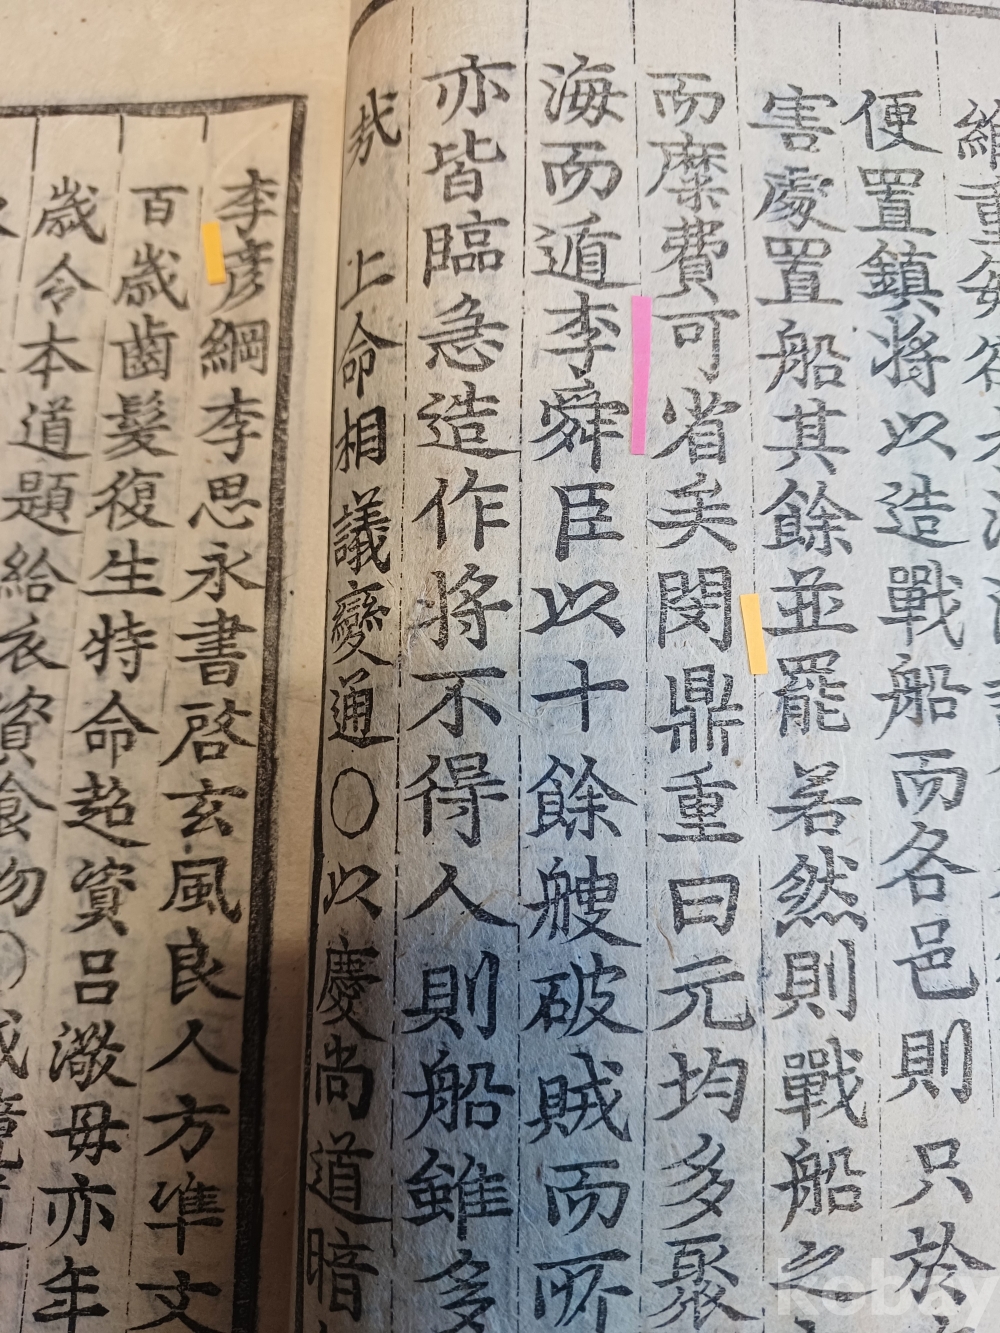 維重
便置鎮將以造戰船而各邑則只於
害處置船其餘並罷若然則戰船之
而糜費可省矣閔鼎重曰元均多聚
海而遁李舜臣以十餘艘破賊而所
亦皆臨急造作將不得人則船雖多
哉 上命相議變通○以慶尚道暗
李彦綱李思永書啓玄風良人方準文
百歲齒髮復生特命超資呂澂母亦年
歲令本道題給衣資食物○咸鏡道
kobay